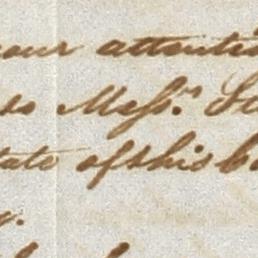 your attenti
to Messrs. St
tate of this b
y.